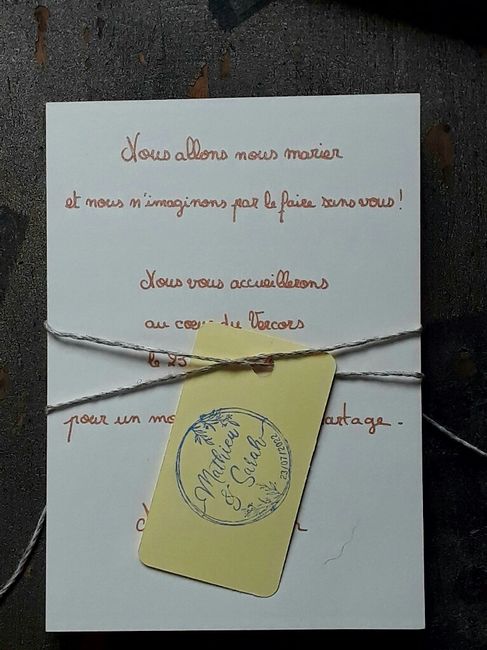 Nous allons nous marier
et nous n'imaginons par le faire sans vous !
Nous vous accueillerons
au coeur du Vercors
le 23
pour un
partage.
Mathieu
& Sarah